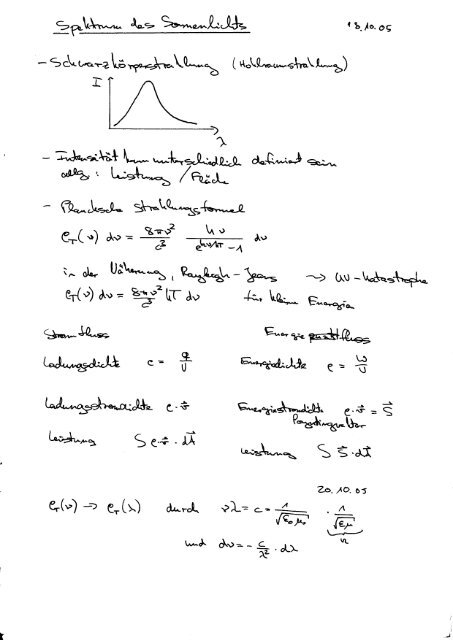 Spektrum des Sonnenlichts 18.10.05
- Schwarzkörperstrahlung (Hohlraumstrahlung)
I
λ
- Intensität kann unterschiedlich definiert sein
allg: Leistung / Fläche
- Plancksche Strahlungsformel
ρ_T(ν) dν = 8πν²/c³ hν/(e^(hν/kT) - 1) dν
in der Näherung, Rayleigh-Jeans → UV-Katastrophe
ρ_T(ν) dν = 8πν²/c³ kT dν für kleine Energie
Stromfluss Energiefluss
Ladungsdichte ρ = Q/V Energiedichte ρ = W/V
Ladungsstromdichte ρ·v⃗ Energiestromdichte ρ·v⃗ = S⃗
Poyntingvektor
Leistung ∫ρ·v⃗·dA⃗ Leistung ∫S⃗·dA⃗
20.10.05
ρ_T(ν) → ρ_T(λ) durch νλ = c = 1/√(ε₀μ₀) · 1/√(εμ)
n
und dν = - c/λ² · dλ